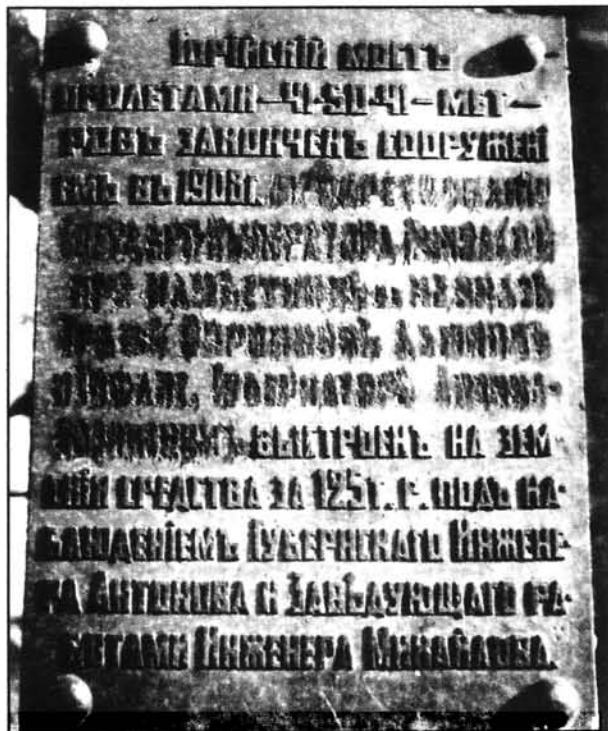 МОСТЪ
ПРОЛЕТАМИ—41-50-41—МЕТ—
РОВЪ ЗАКОНЧЕНЪ СООРУЖЕНІ
ЕМЪ ВЪ 1908 Г. ЦАРСТВОВАНІЕ
ГОСУДАРЯ ИМПЕРАТОРА НИКОЛАЯ
ПРИ НАМѢСТНИКѢ
ВОРОНЦОВѢ ДАШКОВѢ
ГУБЕРНАТОРѢ
ВЫСТРОЕНЪ НА ЗЕМ-
СКІЯ СРЕДСТВА ЗА 125 Т. Р. ПОДЪ НА-
БЛЮДЕНІЕМЪ ГУБЕРНСКАГО ИНЖЕНЕ-
РА АНТОНОВА И ЗАВѢДУЮЩАГО РА-
БОТАМИ ИНЖЕНЕРА МИХАЙЛОВА.